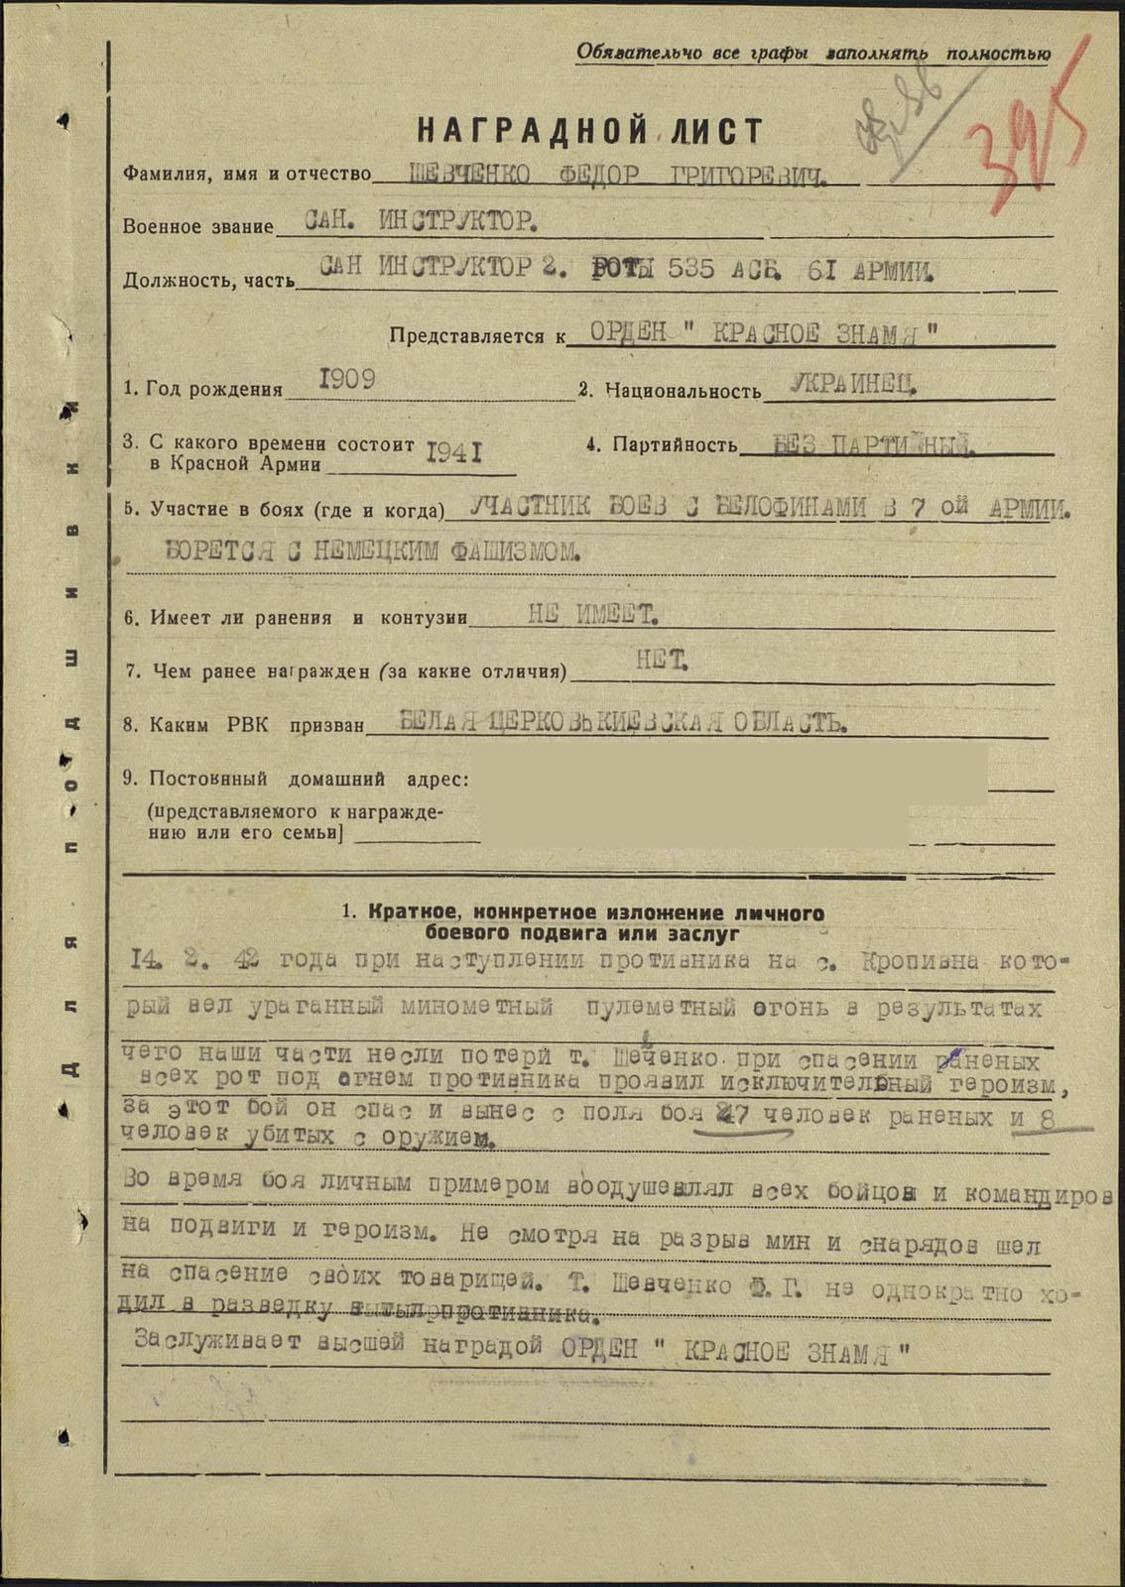 Обязательно все графы заполнять полностью
395
НАГРАДНОЙ ЛИСТ
Фамилия, имя и отчество ШЕВЧЕНКО ФЕДОР ГРИГОРЕВИЧ.
Военное звание САН. ИНСТРУКТОР.
Должность, часть САН ИНСТРУКТОР 2. РОТЫ 535 АСБ. 61 АРМИИ.
Представляется к ОРДЕН " КРАСНОЕ ЗНАМЯ "
1. Год рождения 1909 2. Национальность УКРАИНЕЦ.
3. С какого времени состоит в Красной Армии 1941 4. Партийность БЕЗ ПАРТИЙНЫЙ.
5. Участие в боях (где и когда) УЧАСТНИК БОЕВ С БЕЛОФИНАМИ В 7 ОЙ АРМИИ.
БОРЕТСЯ С НЕМЕЦКИМ ФАШИЗМОМ.
6. Имеет ли ранения и контузии НЕ ИМЕЕТ.
7. Чем ранее награжден (за какие отличия) НЕТ.
8. Каким РВК призван БЕЛАЯ ЦЕРКОВЬ КИЕВСКАЯ ОБЛАСТЬ.
9. Постоянный домашний адрес:
(представляемого к награжде-
нию или его семьи]
1. Краткое, конкретное изложение личного
боевого подвига или заслуг
14. 2. 42 года при наступлении противника на с. Кропивна кото-
рый вел ураганный минометный пулеметный огонь в результатах
чего наши части несли потери т. Шевченко при спасении раненых
всех рот под огнем противника проявил исключительный героизм,
за этот бой он спас и вынес с поля боя 27 человек раненых и 8
человек убитых с оружием.
Во время боя личным примером воодушевлял всех бойцов и командиров
на подвиги и героизм. Не смотря на разрыв мин и снарядов шел
на спасение своих товарищей. Т. Шевченко Ф. Г. не однократно хо-
дил в разведку в тыл противника.
Заслуживает высшей наградой ОРДЕН " КРАСНОЕ ЗНАМЯ "
Для подшивки